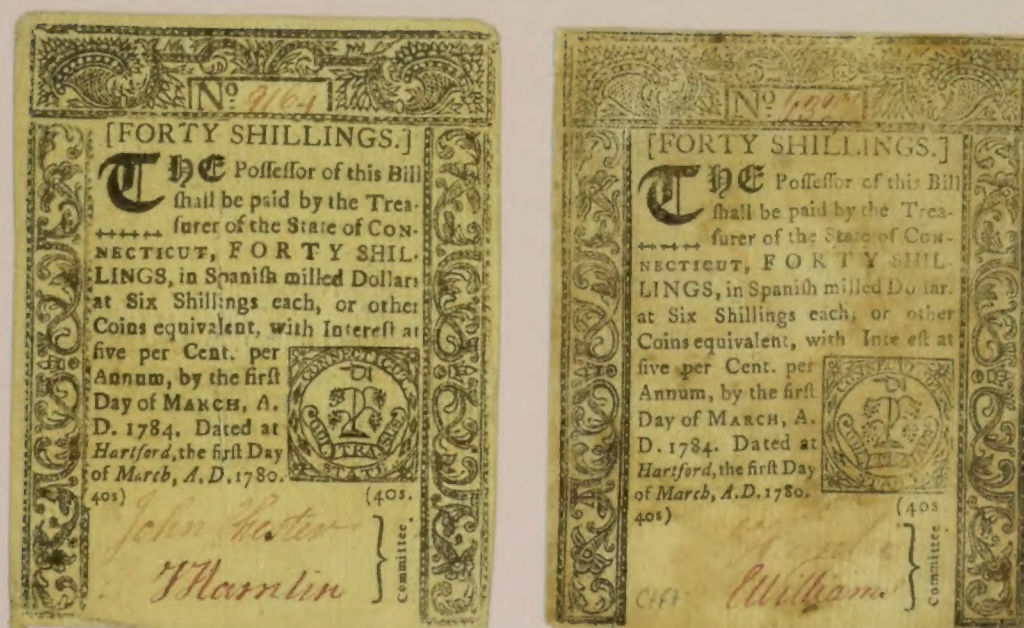 No 9164
[FORTY SHILLINGS.]
THE Poſſeſſor of this Bill
ſhall be paid by the Trea-
ſurer of the State of CON-
NECTICUT, FORTY SHIL-
LINGS, in Spaniſh milled Dollars
at Six Shillings each, or other
Coins equivalent, with Intereſt at
five per Cent. per
Annum, by the firſt
Day of MARCH, A.
D. 1784. Dated at
Hartford, the firſt Day
of March, A.D. 1780.
CONNECTICUT
STATE
40s) (40s.
John Chester
THamlin
Committee.
No
[FORTY SHILLINGS.]
THE Poſſeſſor of this Bill
ſhall be paid by the Trea-
ſurer of the State of CON-
NECTICUT, FORTY SHIL-
LINGS, in Spaniſh milled Dollar.
at Six Shillings each, or other
Coins equivalent, with Inte eſt at
five per Cent. per
Annum, by the firſt
Day of MARCH, A.
D. 1784. Dated at
Hartford, the firſt Day
of March, A.D. 1780.
40s) (40s
EWilliams
Committee.